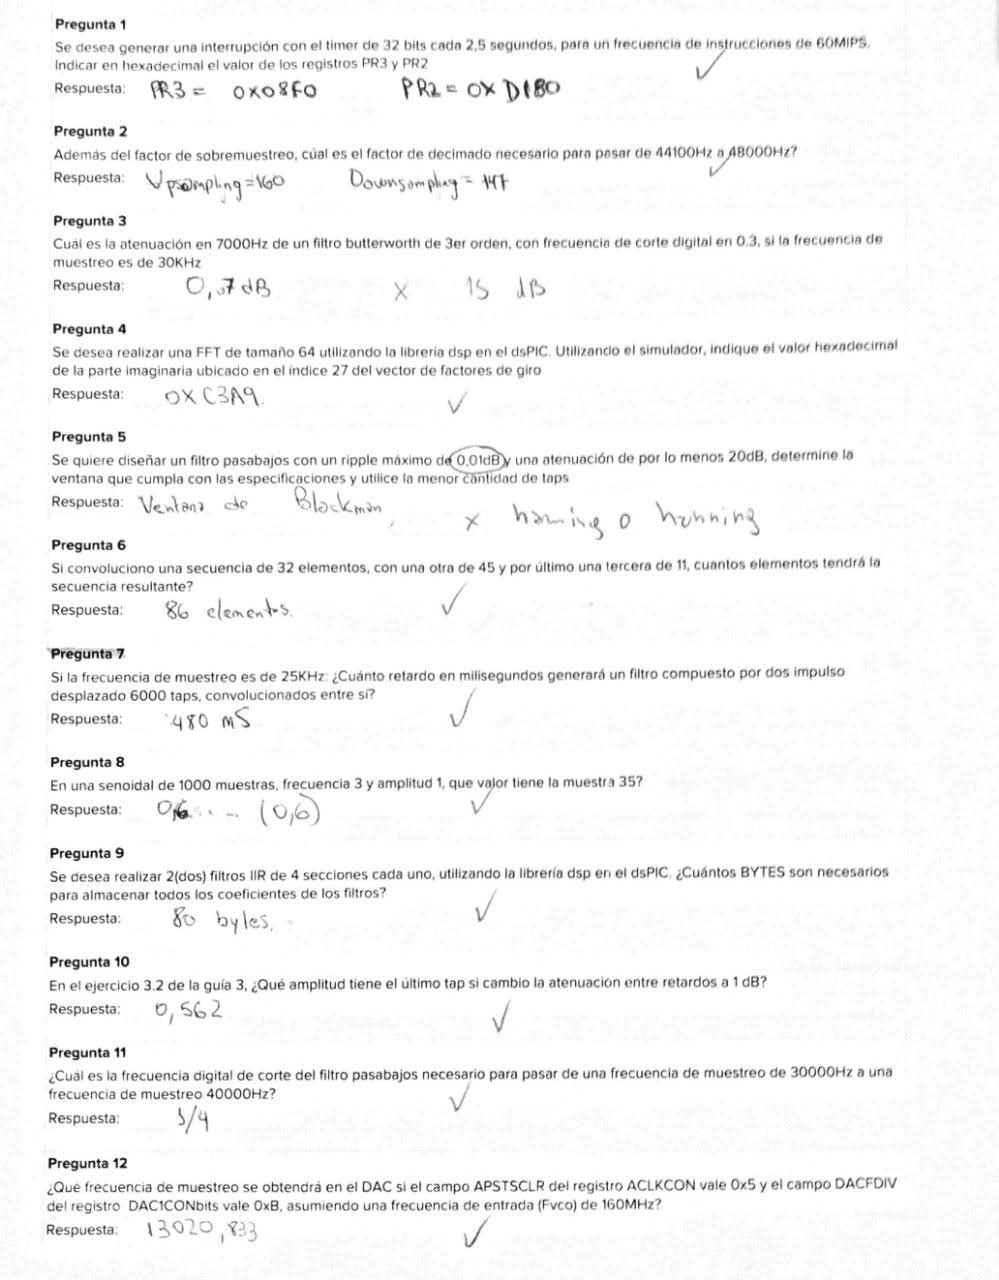 Pregunta 1
Se desea generar una interrupción con el timer de 32 bits cada 2,5 segundos, para un frecuencia de instrucciones de 60MIPS.
Indicar en hexadecimal el valor de los registros PR3 y PR2
Respuesta: PR3 = 0x08F0 PR2 = 0x D180
Pregunta 2
Además del factor de sobremuestreo, cúal es el factor de decimado necesario para pasar de 44100Hz a 48000Hz?
Respuesta: Upsampling = 160 Downsampling = 147
Pregunta 3
Cuál es la atenuación en 7000Hz de un filtro butterworth de 3er orden, con frecuencia de corte digital en 0.3, si la frecuencia de
muestreo es de 30KHz
Respuesta: 0,07 dB x 15 dB
Pregunta 4
Se desea realizar una FFT de tamaño 64 utilizando la librería dsp en el dsPIC. Utilizando el simulador, indique el valor hexadecimal
de la parte imaginaria ubicado en el índice 27 del vector de factores de giro
Respuesta: 0x C3A9. ✓
Pregunta 5
Se quiere diseñar un filtro pasabajos con un ripple máximo de 0,01dB y una atenuación de por lo menos 20dB, determine la
ventana que cumpla con las especificaciones y utilice la menor cantidad de taps
Respuesta: Ventana de Blackman, x haming o hanning
Pregunta 6
Si convoluciono una secuencia de 32 elementos, con una otra de 45 y por último una tercera de 11, cuantos elementos tendrá la
secuencia resultante?
Respuesta: 86 elementos. ✓
Pregunta 7
Si la frecuencia de muestreo es de 25KHz: ¿Cuánto retardo en milisegundos generará un filtro compuesto por dos impulso
desplazado 6000 taps, convolucionados entre sí?
Respuesta: 480 mS ✓
Pregunta 8
En una senoidal de 1000 muestras, frecuencia 3 y amplitud 1, que valor tiene la muestra 35?
Respuesta: 0,6... (0,6) ✓
Pregunta 9
Se desea realizar 2(dos) filtros IIR de 4 secciones cada uno, utilizando la librería dsp en el dsPIC. ¿Cuántos BYTES son necesarios
para almacenar todos los coeficientes de los filtros?
Respuesta: 80 bytes. ✓
Pregunta 10
En el ejercicio 3.2 de la guía 3, ¿Qué amplitud tiene el último tap si cambio la atenuación entre retardos a 1 dB?
Respuesta: 0,562 ✓
Pregunta 11
¿Cuál es la frecuencia digital de corte del filtro pasabajos necesario para pasar de una frecuencia de muestreo de 30000Hz a una
frecuencia de muestreo 40000Hz?
Respuesta: ✓
Pregunta 12
¿Qué frecuencia de muestreo se obtendrá en el DAC si el campo APSTSCLR del registro ACLKCON vale 0x5 y el campo DACFDIV
del registro DAC1CONbits vale 0xB, asumiendo una frecuencia de entrada (Fvco) de 160MHz?
Respuesta: 13020,833 ✓